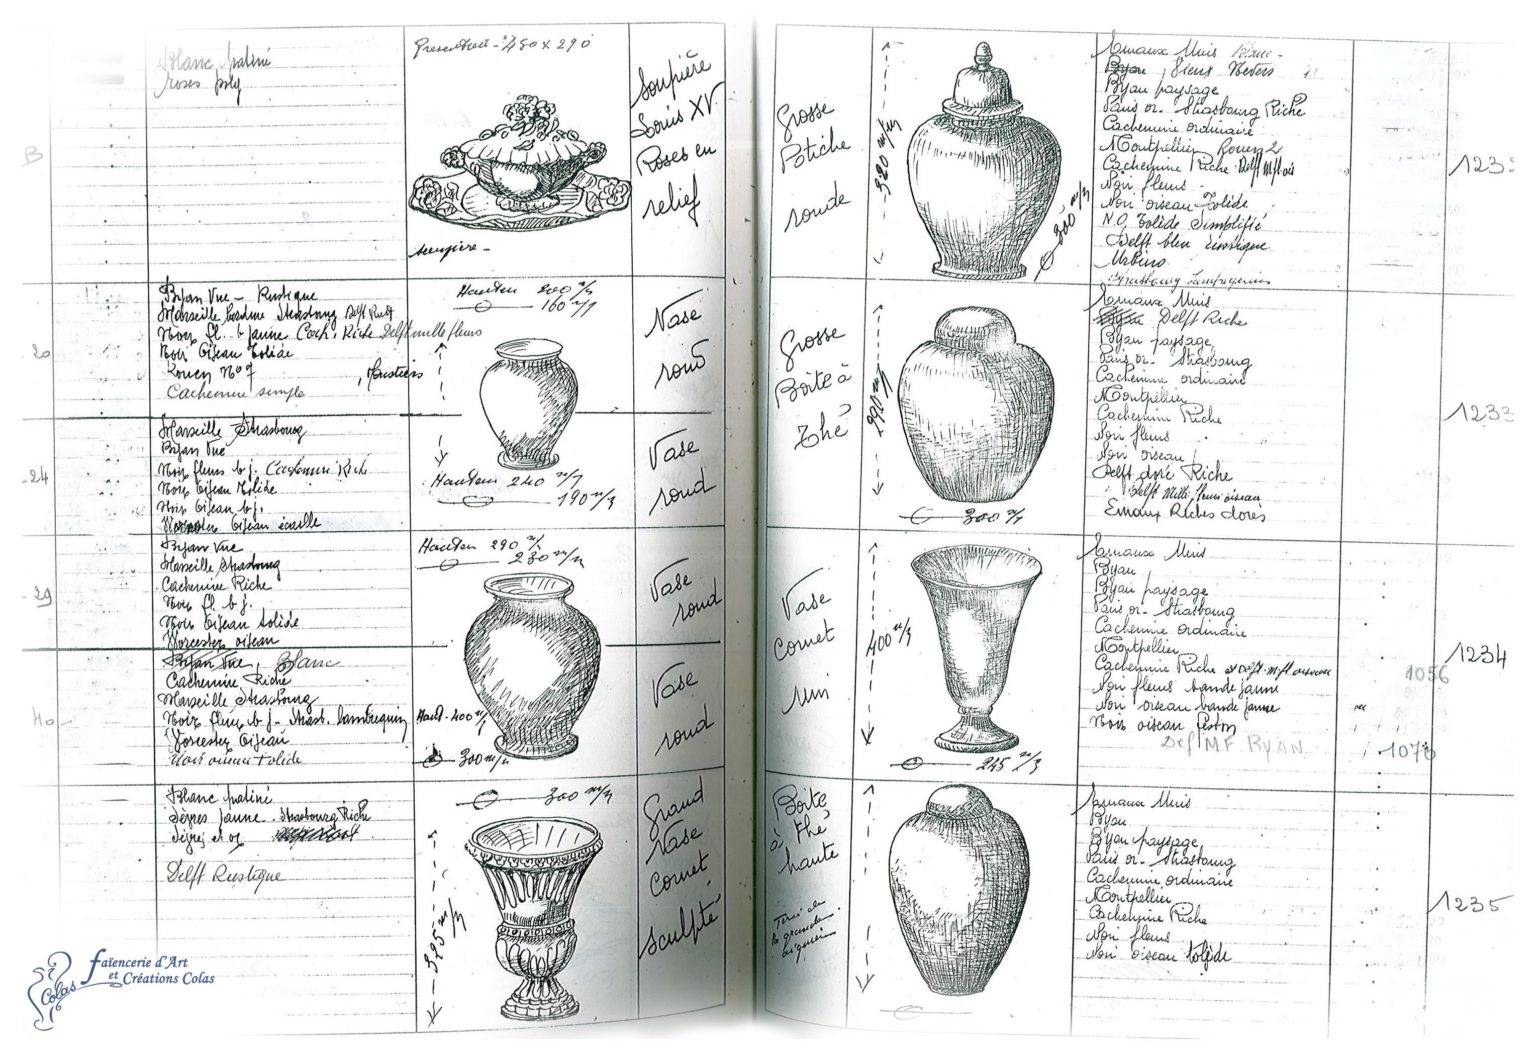 Blanc patiné
roses poly
Présentoir - 450 x 290
soupière -
Soupière
Louis XV
Roses en
relief
B
Byan Vue - Rustique
Marseille Strasbourg Delft Rust
Noir fl. b jaune Cach. Riche Delft mille fleurs
Noir Oiseau Tolède
Rouen No 7
, Moustiers
Cachemire simple
20
Hauteur 200 m/m
160 m/m
Vase
rond
Marseille Strasbourg
Byan Vue
Noir fleurs b j. Cachemire Riche
Noir Oiseau Tolède
Noir Oiseau b j.
Worcester Oiseau écaille
24
Hauteur 240 m/m
190 m/m
Vase
rond
Byan Vue
Marseille Strasbourg
Cachemire Riche
Noir fl. b j.
Noir Oiseau Tolède
Worcester oiseau
29
Hauteur 290 m/m
230 m/m
Vase
rond
Byan Vue, Blanc
Cachemire Riche
Marseille Strasbourg
Noir fleurs b j - Strasb. lambrequin
Worcester Oiseau
Noir oiseau Tolède
40
Haut - 400 m/m
300 m/m
Vase
rond
Blanc patiné
Sèvres jaune - Strasbourg Riche
Sèvres et or
Delft Rustique
300 m/m
395 m/m
Grand
Vase
Cornet
sculpté
Faïencerie d'Art
et Créations Colas
Colas
Grosse
Potiche
ronde
320 m/m
300 m/m
Emaux Unis Blanc -
Byan, Vieux Nevers
Byan paysage
Paris or - Strasbourg Riche
Cachemire ordinaire
Montpellier Rouen 2
Cachemire Riche Delft M fl ois
Noir fleurs
Noir oiseau Tolède
N.O. Tolède Simplifié
Delft bleu rustique
Urbino
Strasbourg Lambrequins
1232
Grosse
Boite à
Thé
290 m/m
300 m/m
Emaux Unis
Byan Delft Riche
Byan paysage
Paris or - Strasbourg
Cachemire ordinaire
Montpellier
Cachemire Riche
Noir fleurs
Noir oiseau
Delft doré Riche
Delft Mille fleurs oiseau
Emaux Riches dorés
1233
Vase
Cornet
Uni
400 m/m
245 m/m
Emaux Unis
Byan
Byan paysage
Paris or - Strasbourg
Cachemire ordinaire
Montpellier
Cachemire Riche et Delft m fl oiseau
Noir fleurs bande jaune
Noir oiseau bande jaune
Noir oiseau feston
Delf M.F. BYAN
1056
1073
1234
Boite
à thé
haute
Emaux Unis
Byan
Byan paysage
Paris or - Strasbourg
Cachemire ordinaire
Montpellier
Cachemire Riche
Noir fleurs
Noir oiseau tolède
1235